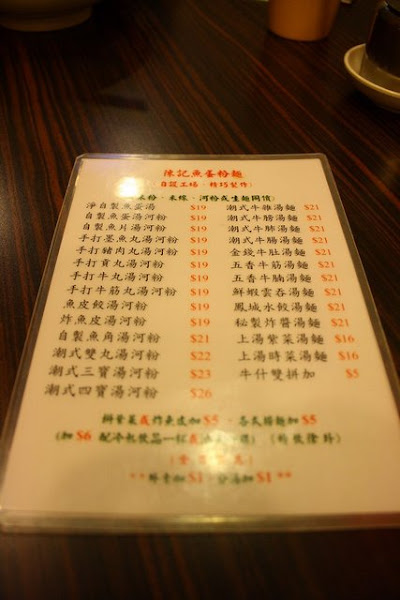 陳記魚蛋粉麵
自設工場 · 精巧製作
米粉 · 米線 · 河粉或生麵同價
淨自製魚蛋湯 $19
自製魚蛋湯河粉 $19
自製魚片湯河粉 $19
手打墨魚丸湯河粉 $19
手打豬肉丸湯河粉 $19
手打貢丸湯河粉 $19
手打牛丸湯河粉 $19
手打牛筋丸湯河粉 $19
魚皮餃湯河粉 $19
炸魚皮湯河粉 $19
自製魚角湯河粉 $21
潮式雙丸湯河粉 $22
潮式三寶湯河粉 $23
潮式四寶湯河粉 $26
潮式牛雜湯麵 $21
潮式牛膀湯麵 $21
潮式牛肺湯麵 $21
潮式牛腸湯麵 $21
金錢牛肚湯麵 $21
五香牛筋湯麵 $21
五香牛腩湯麵 $21
鮮蝦雲吞湯麵 $21
鳳城水餃湯麵 $21
秘製炸醬湯麵 $21
上湯紫菜湯麵 $16
上湯時菜湯麵 $16
牛什雙拼加 $5
拼紫菜或炸魚皮加 $5 · 各式撈麵加 $5
(加 $6 配冷熱飲品一杯或
**外賣加 $1 · 分湯加 $1**